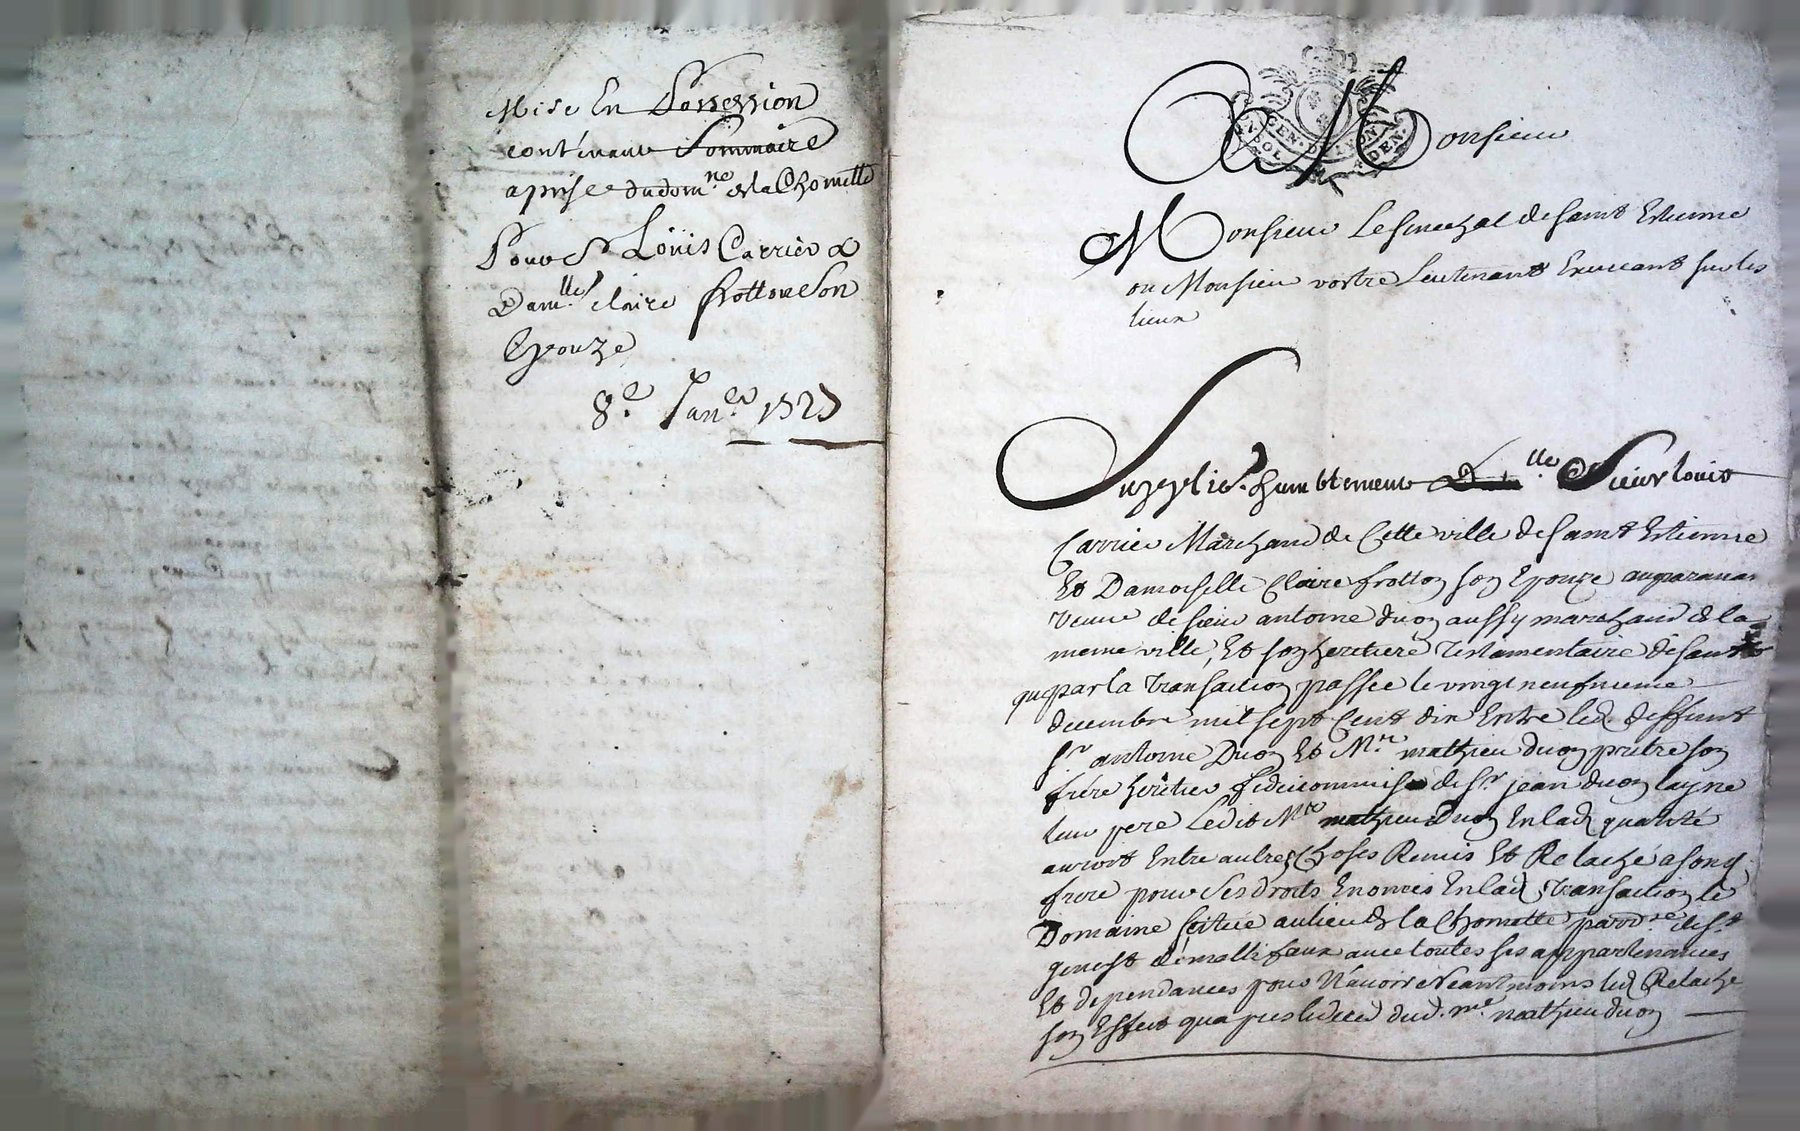 Mise En Possession
contenant Sommaire
aprise du dom.ne de la Chomette
Pour Sr Loüis Carrier &
Dam.lle claire frotton Son
Epouze
8.e Jan.er 1727
A Monsieur
GEN. DE LYON
Monsieur Le Senechal de Saint Estienne
ou Monsieur vostre Lieutenant Exerceant sur les
lieux
Supplie humblement Sieur louis
Carrier Marchand de Cette ville de Saint Estienne
Et Damoiselle Claire frotton son Epouze auparavant
veuve de sieur antoine duon aussy marchand de la
meme ville, Et son heritiere Testamentaire disant
que par la transaction passée le vingt neufvieme
decembre mil sept Cent dix Entre led. deffunt
Sr antoine Duon Et Mre mathieu duon pretre son
frere heritier fideicommis de Sr jean duon layne
leur pere Ledit Mre mathieu duon En lad. qualité
auroit Entre autres Choses Remis Et Relaché a son
frere pour Ses droits Enoncés En lad. transaction le
Domaine Scitué au lieu de la Chomette parr.sse de St
genest de mallifaux avec toutes ses appartenances
Et dependances pour N'avoir Neantmoins led. Relache
son Effect qu'apres le deces dud. mre mathieu duon